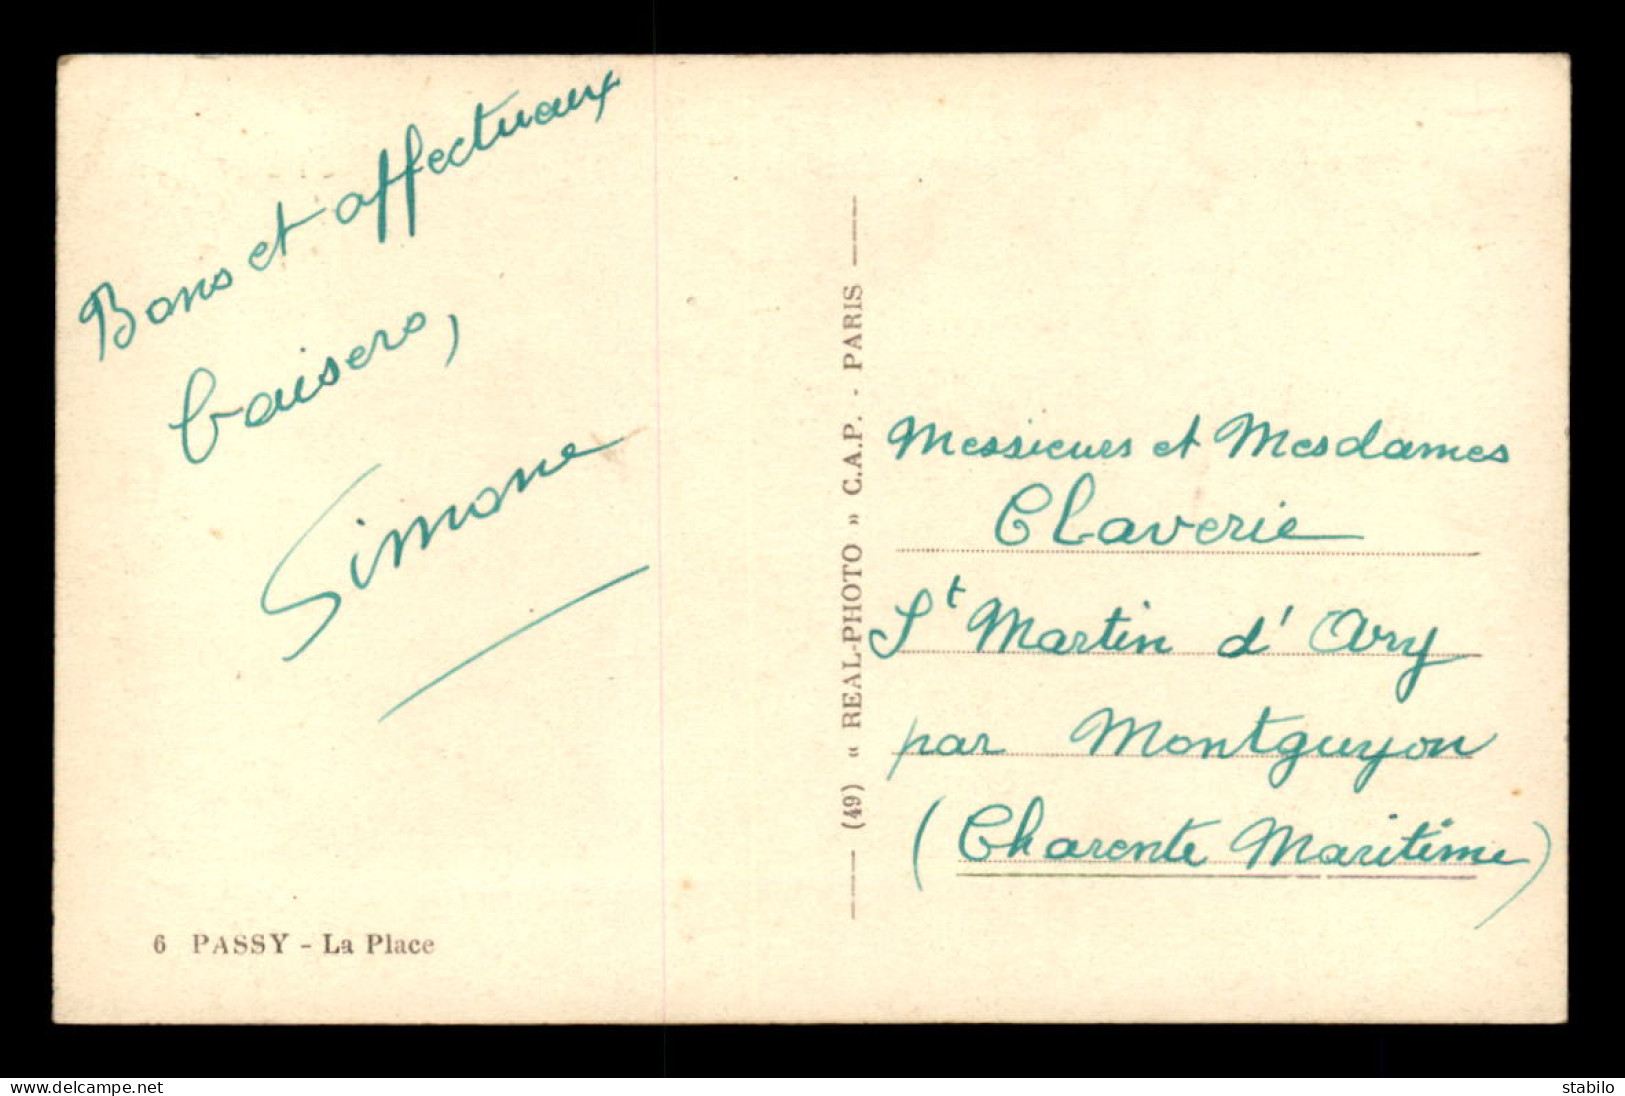 Bons et affectueux
baisers,
Simone
6 PASSY - La Place
(49) « REAL-PHOTO » C.A.P. - PARIS
Messieurs et Mesdames
Claverie
St Martin d'Ary
par Montguyon
(Charente Maritime)
www.delcampe.net
stabilo